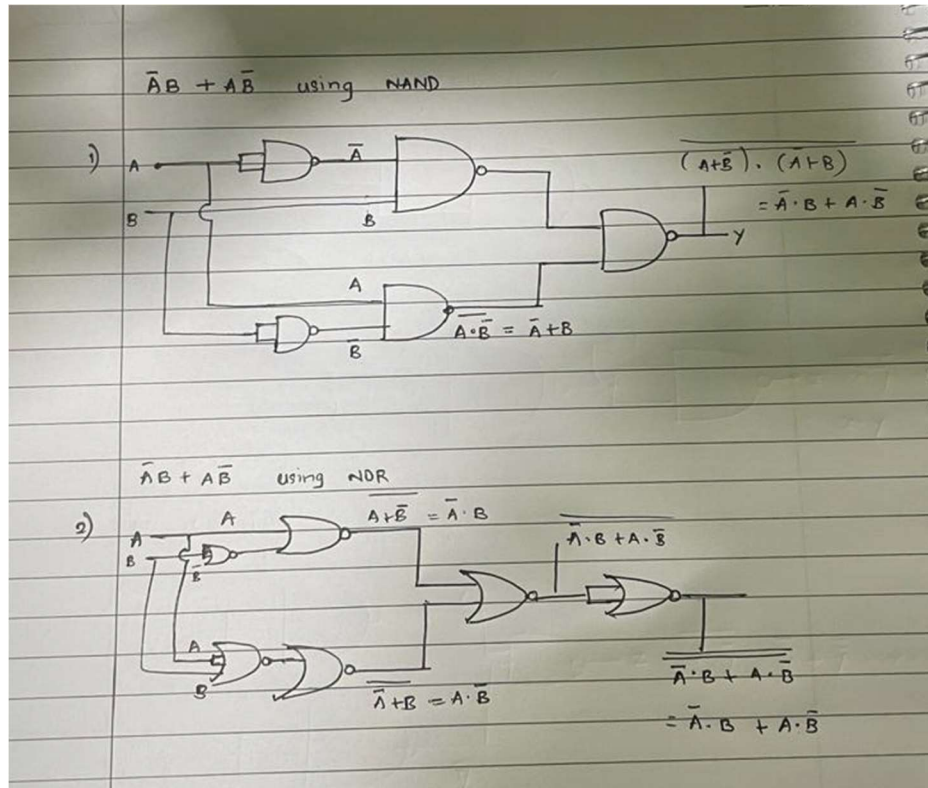 A̅B + AB̅ using NAND
1)
A
A̅
B
B
(A+B̅) . (A̅+B)
= A̅·B + A·B̅
Y
A
A·B̅ = A̅+B
B̅
A̅B + AB̅ using NOR
2)
A
B
A
B̅
A+B̅ = A̅·B
A̅·B + A·B̅
A
B
A̅+B = A·B̅
A̅·B + A·B̅
= A̅.B + A·B̅